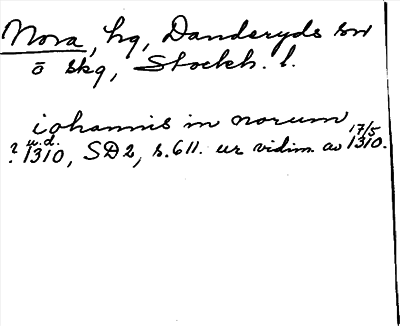 Nora, hg, Danderyds sn
ö skg, Stockh. l.
iohannis in norum
? u.d. 1310, SD2, s.611. ur vidim. av 17/5 1310.